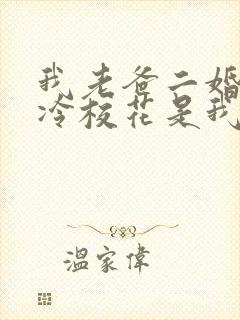 我老爸二婚
冷校花是我
溫家偉